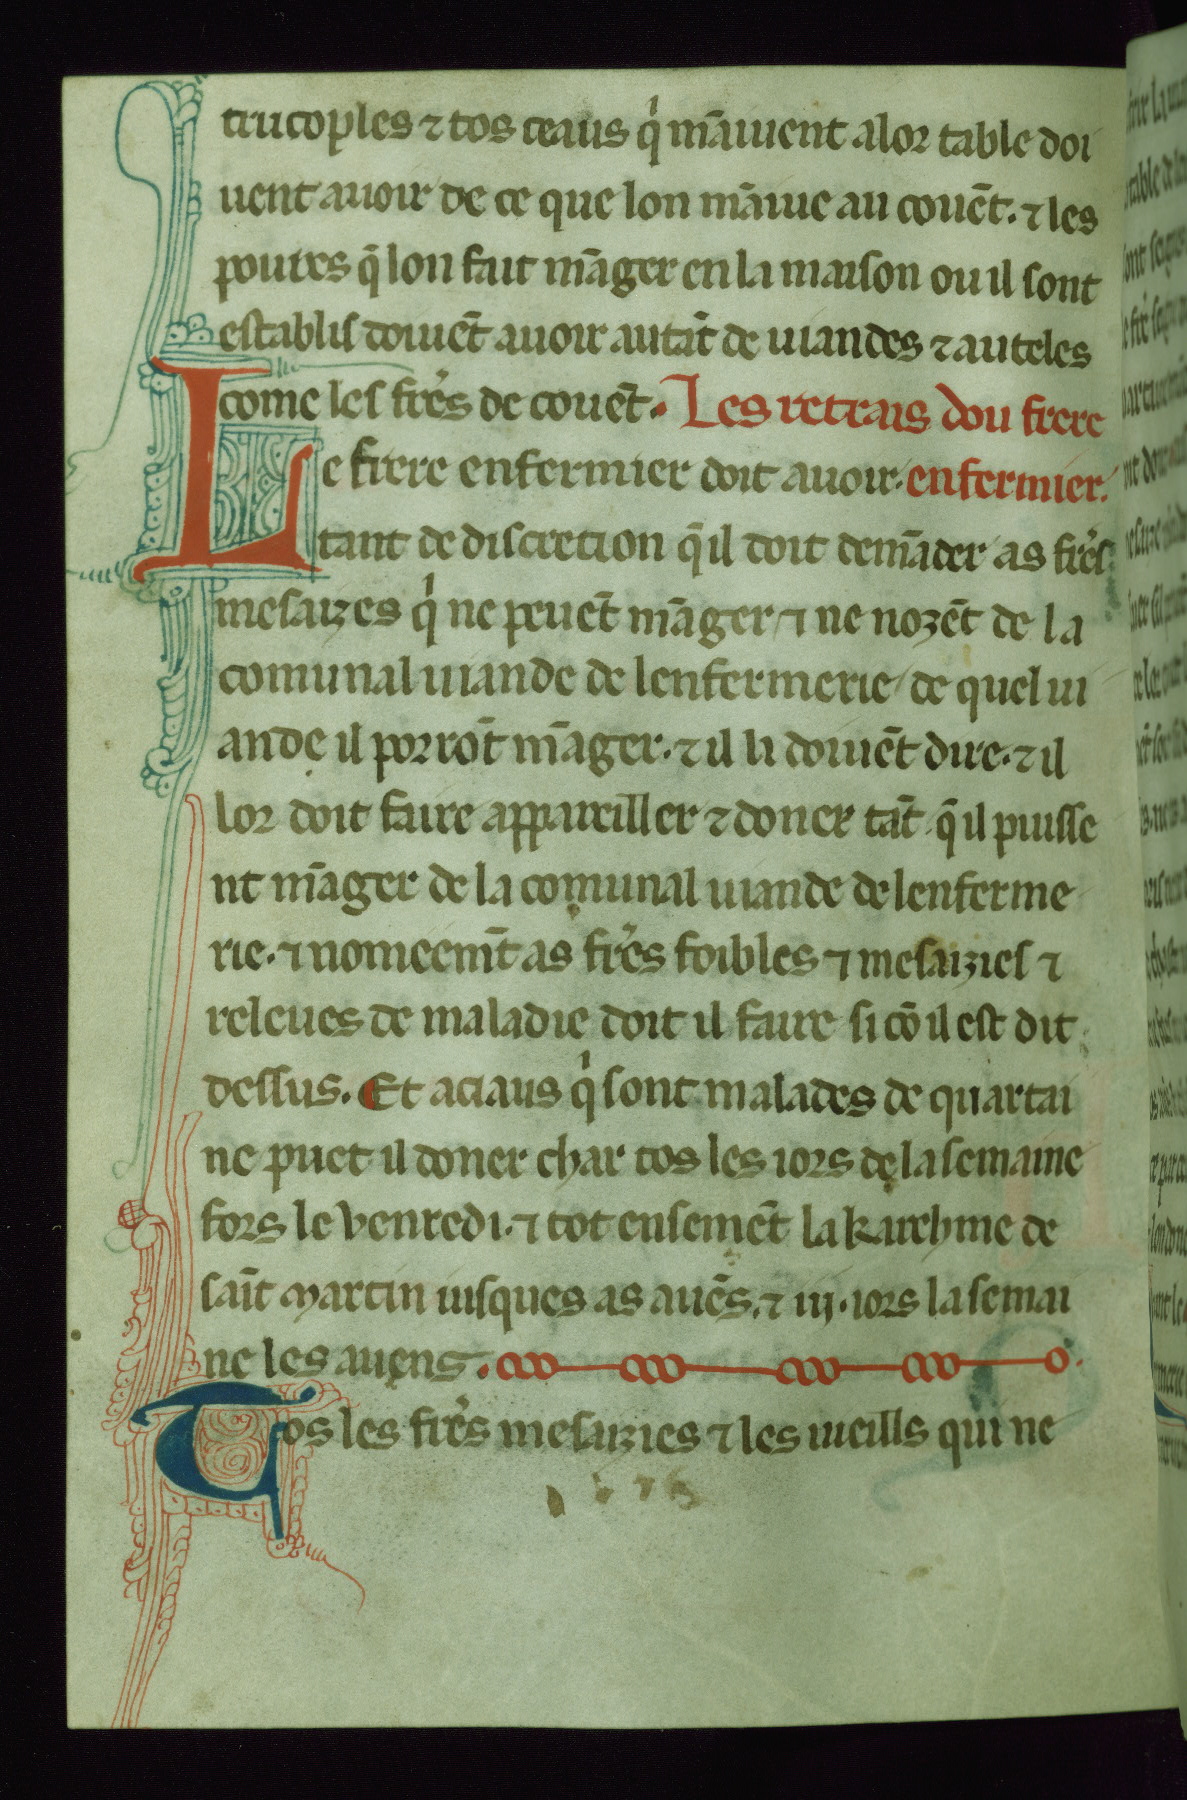 trucoples ⁊ tos ceaus q̇ māiuent a lor table doi
uent auoir de ce que lon māiue au couēt. ⁊ les
poures q̄ lon fait māger en la maison ou il sont
establis doiuēt auoir autāt de uiandes ⁊ auteles
come les frēs de couēt. Les retrais dou frere
Le frere enfermier doit auoir. enfermier.
tant de discretion q̄ il doit demāder as frēs
mesaizes q̇ ne peuēt māger ⁊ ne nozēt de la
comunal uiande de lenfermerie de quel ui
ande il porrōt māger. ⁊ il li doiuēt dire. ⁊ il
lor doit faire appareiller ⁊ doner tāt q̄ il puisse
nt māger de la comunal uiande de lenferme
rie. ⁊ nomeemīt as frēs foibles ⁊ mesaizies ⁊
releues de maladie doit il faire si cō il est dit
dessus. Et aciaus q̇ sont malades de quartai
ne puet il doner char tos les iors de la semaine
fors le venredi. ⁊ tot ensemēt la karehme de
saīt martin iusques as auēs. ⁊ iij. iors la semai
ne les auens.
Tos les frēs mesaizies ⁊ les uieills qui ne